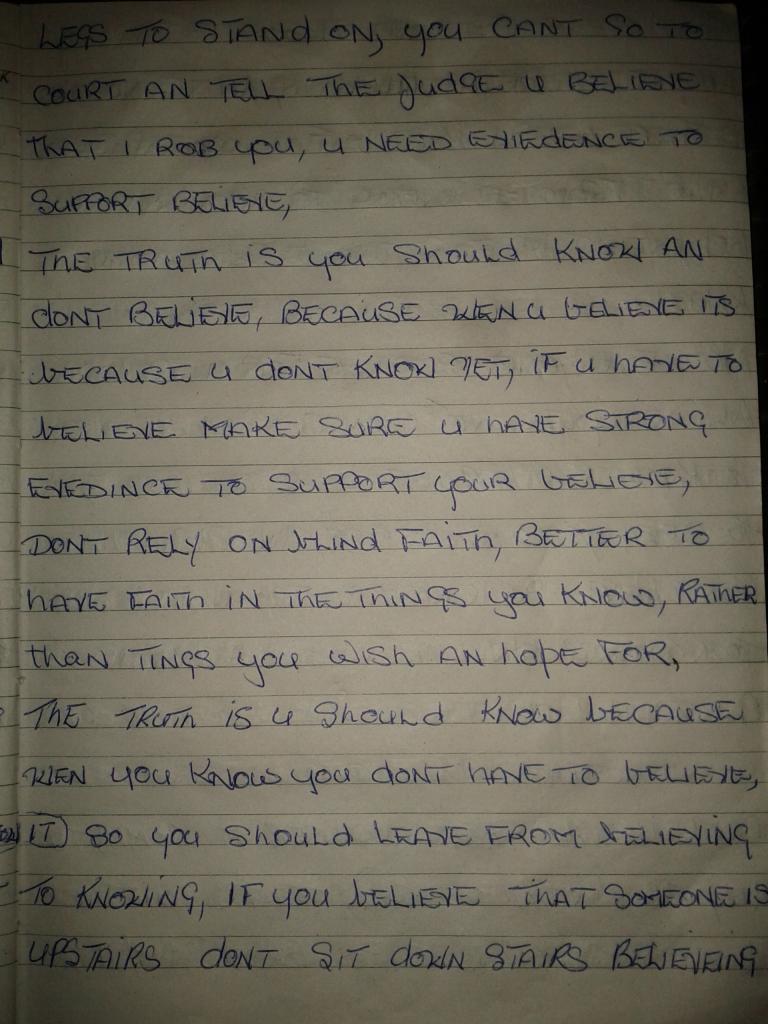 LEGS TO STAND ON, you CANT GO TO
COURT AN TELL THE JUDGE U BELIEVE
THAT I ROB you, U NEED EVIEDENCE TO
SUPPORT BELIEVE,
THE TRUTH IS you Should KNOW AN
dONT BELIEVE, BECAUSE WEN U bELIEVE ITS
bECAUSE U dONT KNOW YET, IF U hAVE TO
bELIEVE MAKE SURE U hAVE STRONG
EVEDINCE TO SUPPORT yOUR bELIEVE,
DONT RELY ON blind FAITh, BETTER TO
hAVE FAITh iN THE ThINGS you KNOW, RATHER
thAN TINGS you WISh AN hOpE FOR,
THE TRUTh IS U Should KNOW bECAUSE
WEN you KNOW you dONT hAVE TO bELIEVE,
IT SO you Should LEAVE FROM bELIEVING
TO KNOWING, IF you bELIEVE THAT SOMEONE IS
UPSTAIRS dONT SIT dOWN STAIRS BELIEVEING